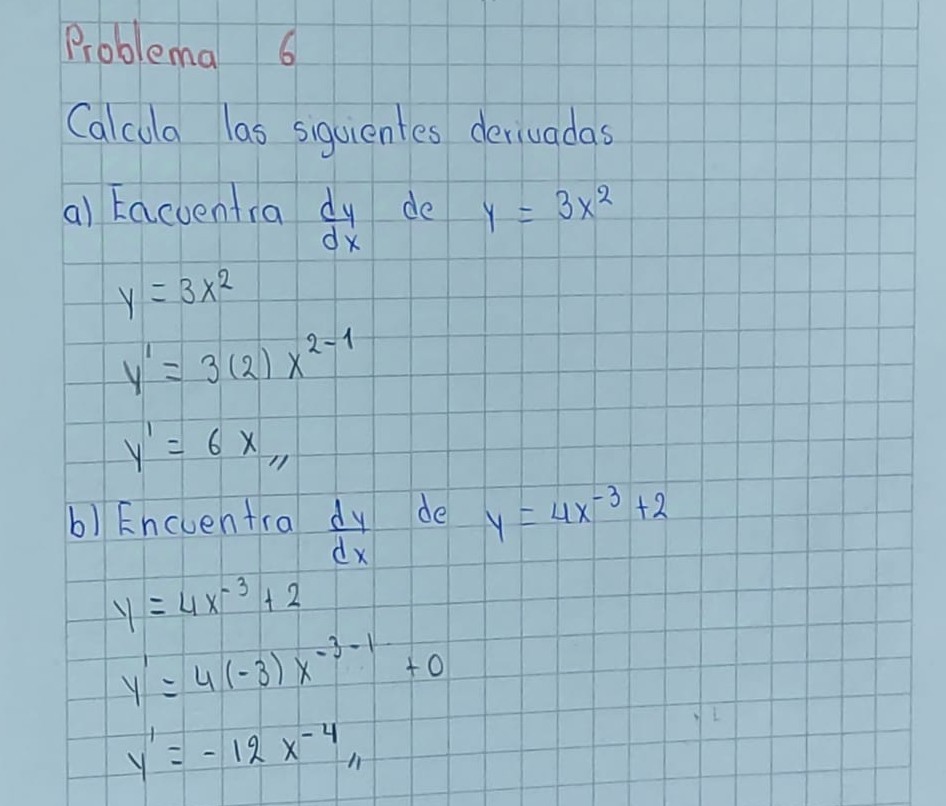 Problema 6
Calcula las siguientes derivadas
a) Eacuentra dy/dx de y = 3x²
y = 3x²
y' = 3(2) x²⁻¹
y' = 6 x,,
b) Encuentra dy/dx de y = 4x⁻³ + 2
y = 4x⁻³ + 2
y' = 4(-3) x⁻³⁻¹ + 0
y' = - 12 x⁻⁴,,